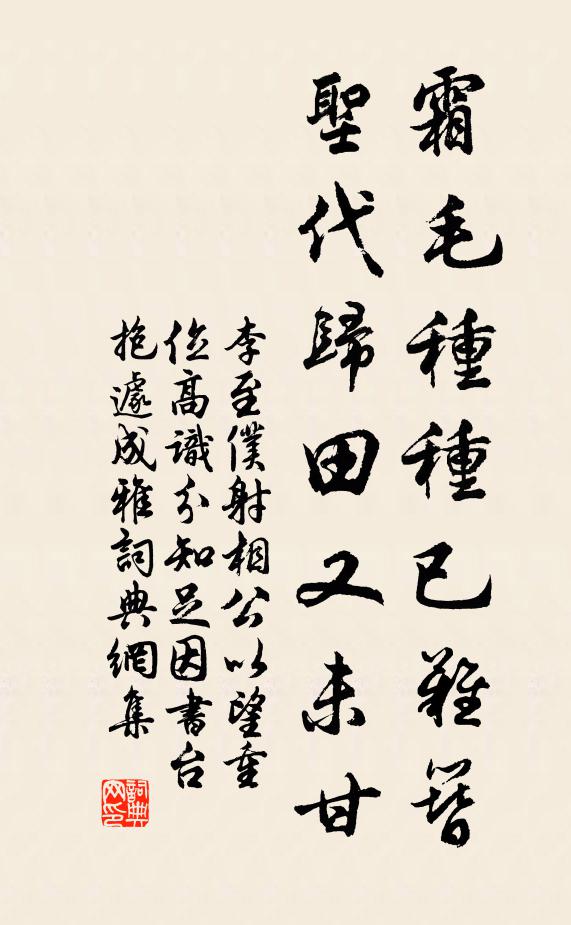 霜毛種種已難簪
聖代歸田又未甘
李至僕射相公以望重
位高識分知足因書台
抱遽成雅詞典網集
詞典網印